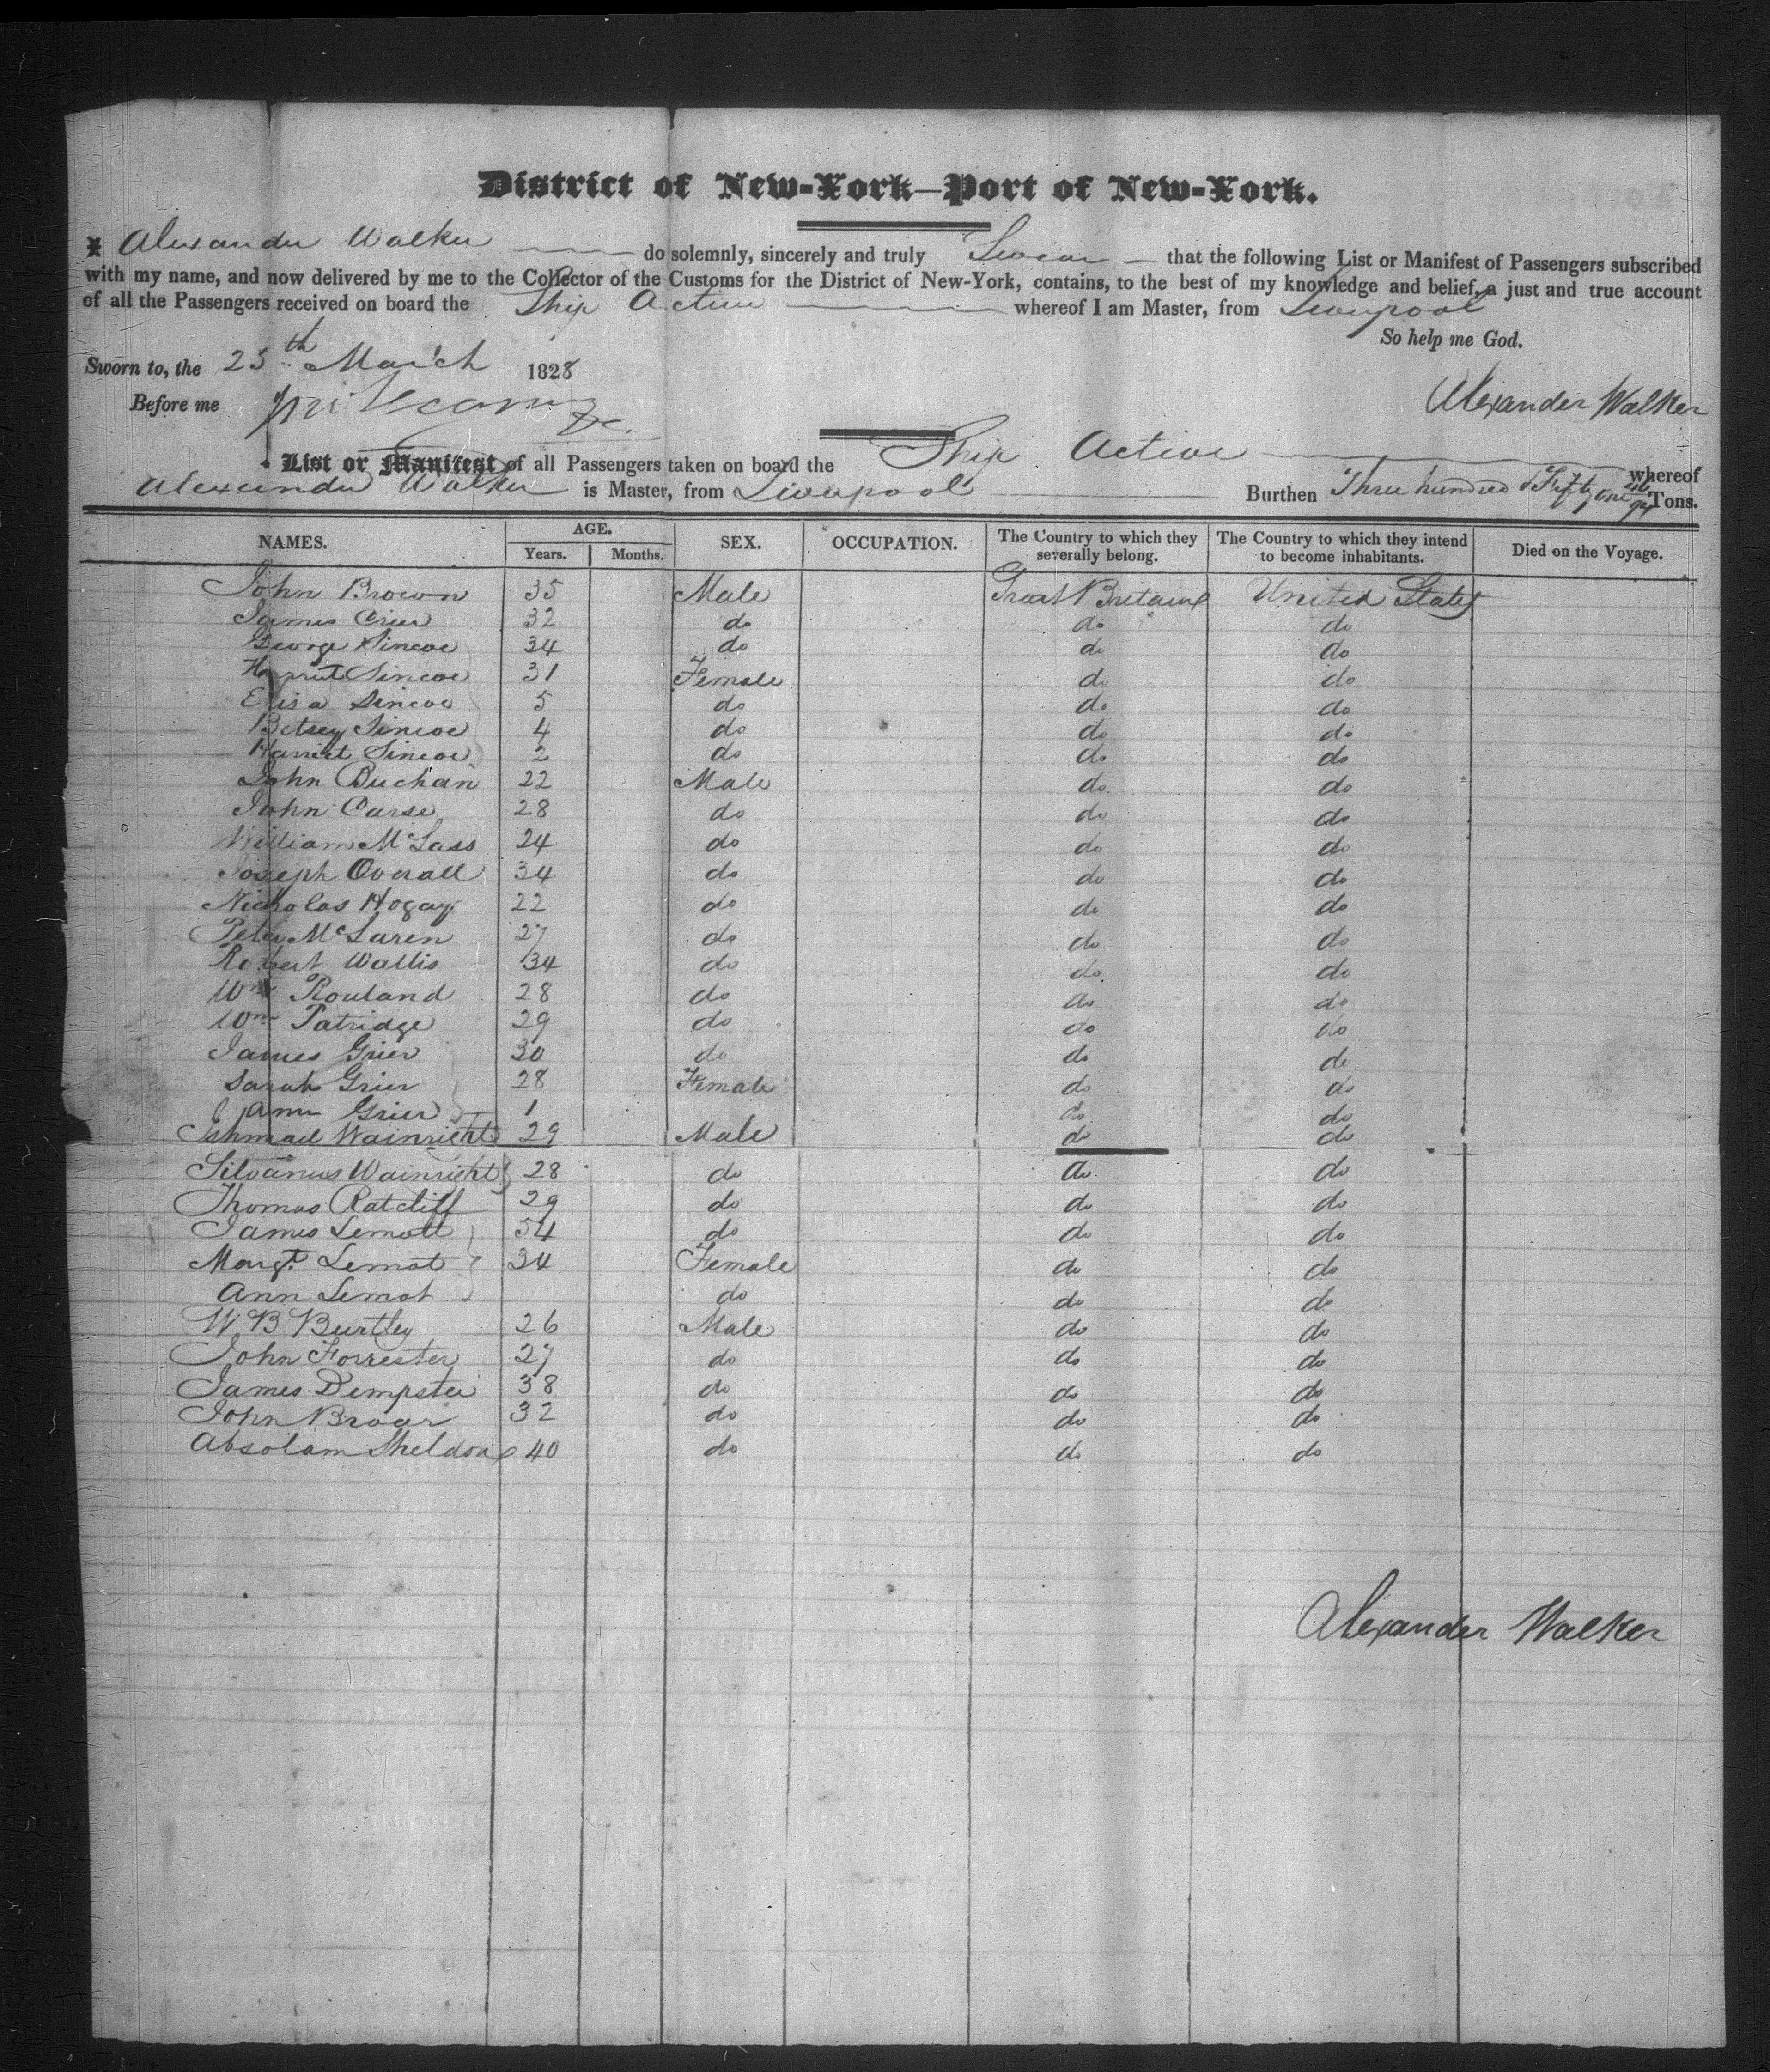 District of New-York—Port of New-York.
I Alexander Walker do solemnly, sincerely and truly Swear that the following List or Manifest of Passengers subscribed
with my name, and now delivered by me to the Collector of the Customs for the District of New-York, contains, to the best of my knowledge and belief, a just and true account
of all the Passengers received on board the Ship Active whereof I am Master, from Liverpool
So help me God.
Sworn to, the 25th March 1828
Before me
Alexander Walker
List or Manifest of all Passengers taken on board the Ship Active whereof
Alexander Walker is Master, from Liverpool Burthen Three hundred & Fifty one Tons.
NAMES. AGE. Years. Months. SEX. OCCUPATION. The Country to which they severally belong. The Country to which they intend to become inhabitants. Died on the Voyage.
John Brown 35 Male Great Britain United States
James Crier 32 do do do
George Sincoe 34 do do do
Harriet Sincoe 31 Female do do
Elisa Sincoe 5 do do do
Betsey Sincoe 4 do do do
Harriet Sincoe 2 do do do
John Buchan 22 Male do do
John Carse 28 do do do
William McLass 24 do do do
Joseph Overall 34 do do do
Nicholas Hogay 22 do do do
Peter McLaren 27 do do do
Robert Wallis 34 do do do
Wm Rouland 28 do do do
Wm Patridge 29 do do do
James Grier 30 do do do
Sarah Grier 28 Female do do
Ann Grier 1 do do
Ishmael Wainright 29 Male do do
Silvanus Wainright 28 do do do
Thomas Ratcliff 29 do do do
James Lemott 54 do do do
Margt. Lemot 34 Female do do
Ann Lemot do do do
W B Burtley 26 Male do do
John Forrester 27 do do do
James Dempster 38 do do do
John Broar 32 do do do
Absolam Sheldon 40 do do do
Alexander Walker